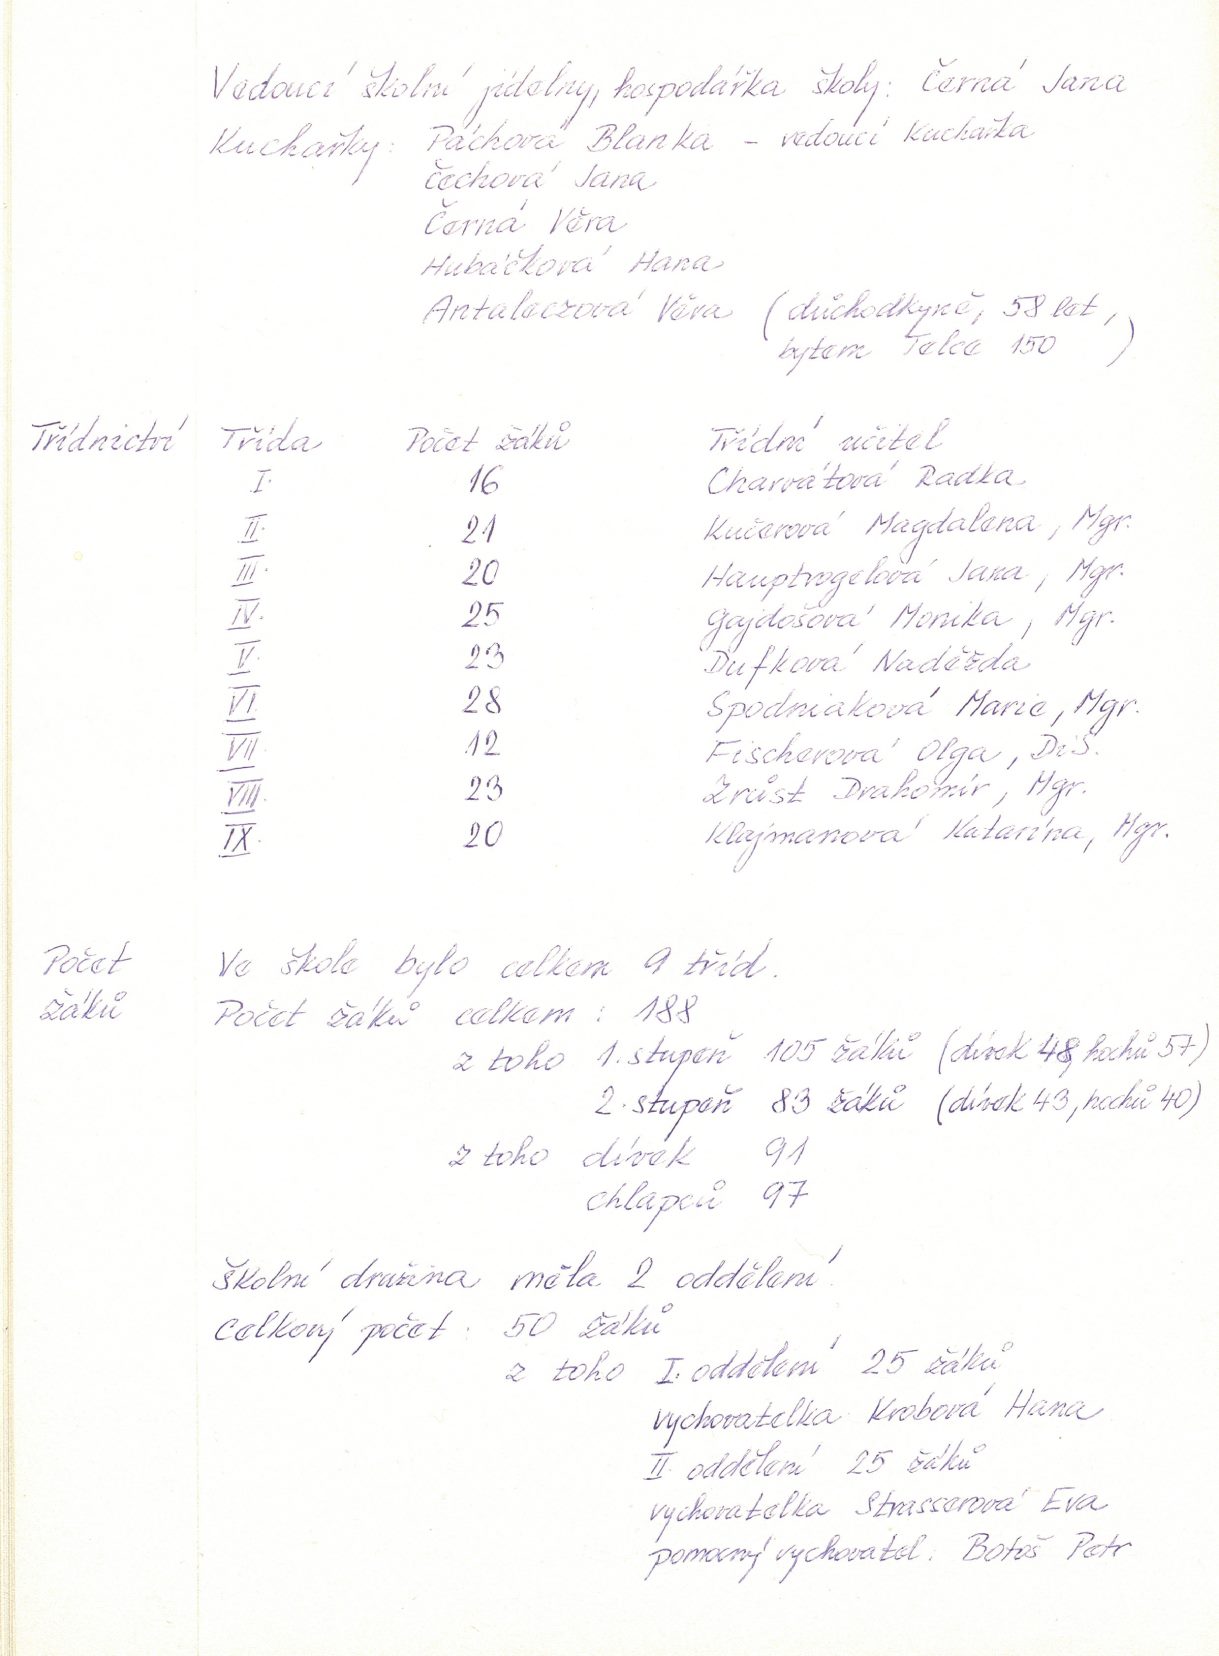 Vedoucí školní jídelny, hospodářka školy: Černá Jana
Kuchařky: Páchová Blanka - vedoucí kuchařka
Čechová Jana
Černá Věra
Hubáčková Hana
Antaleczová Věra (důchodkyně, 58 let,
bytem Telce 150)
Třídnictví Třída Počet žáků Třídní učitel
I. 16 Charvátová Radka
II. 21 Kučerová Magdalena, Mgr.
III. 20 Hauptvogelová Jana, Mgr.
IV. 25 Gajdošová Monika, Mgr.
V. 23 Dufková Naděžda
VI. 28 Spodniaková Marie, Mgr.
VII. 12 Fischerová Olga, DiS.
VIII. 23 Zrůst Drahomír, Mgr.
IX. 20 Klajmanová Katarína, Mgr.
Počet Ve škole bylo celkem 9 tříd.
žáků Počet žáků celkem: 188
z toho 1. stupeň 105 žáků (dívek 48, hochů 57)
2. stupeň 83 žáků (dívek 43, hochů 40)
z toho dívek 91
chlapců 97
Školní družina měla 2 oddělení.
Celkový počet: 50 žáků
z toho I. oddělení 25 žáků
vychovatelka Krobová Hana
II. oddělení 25 žáků
vychovatelka Strasserová Eva
pomocný vychovatel: Botoš Petr